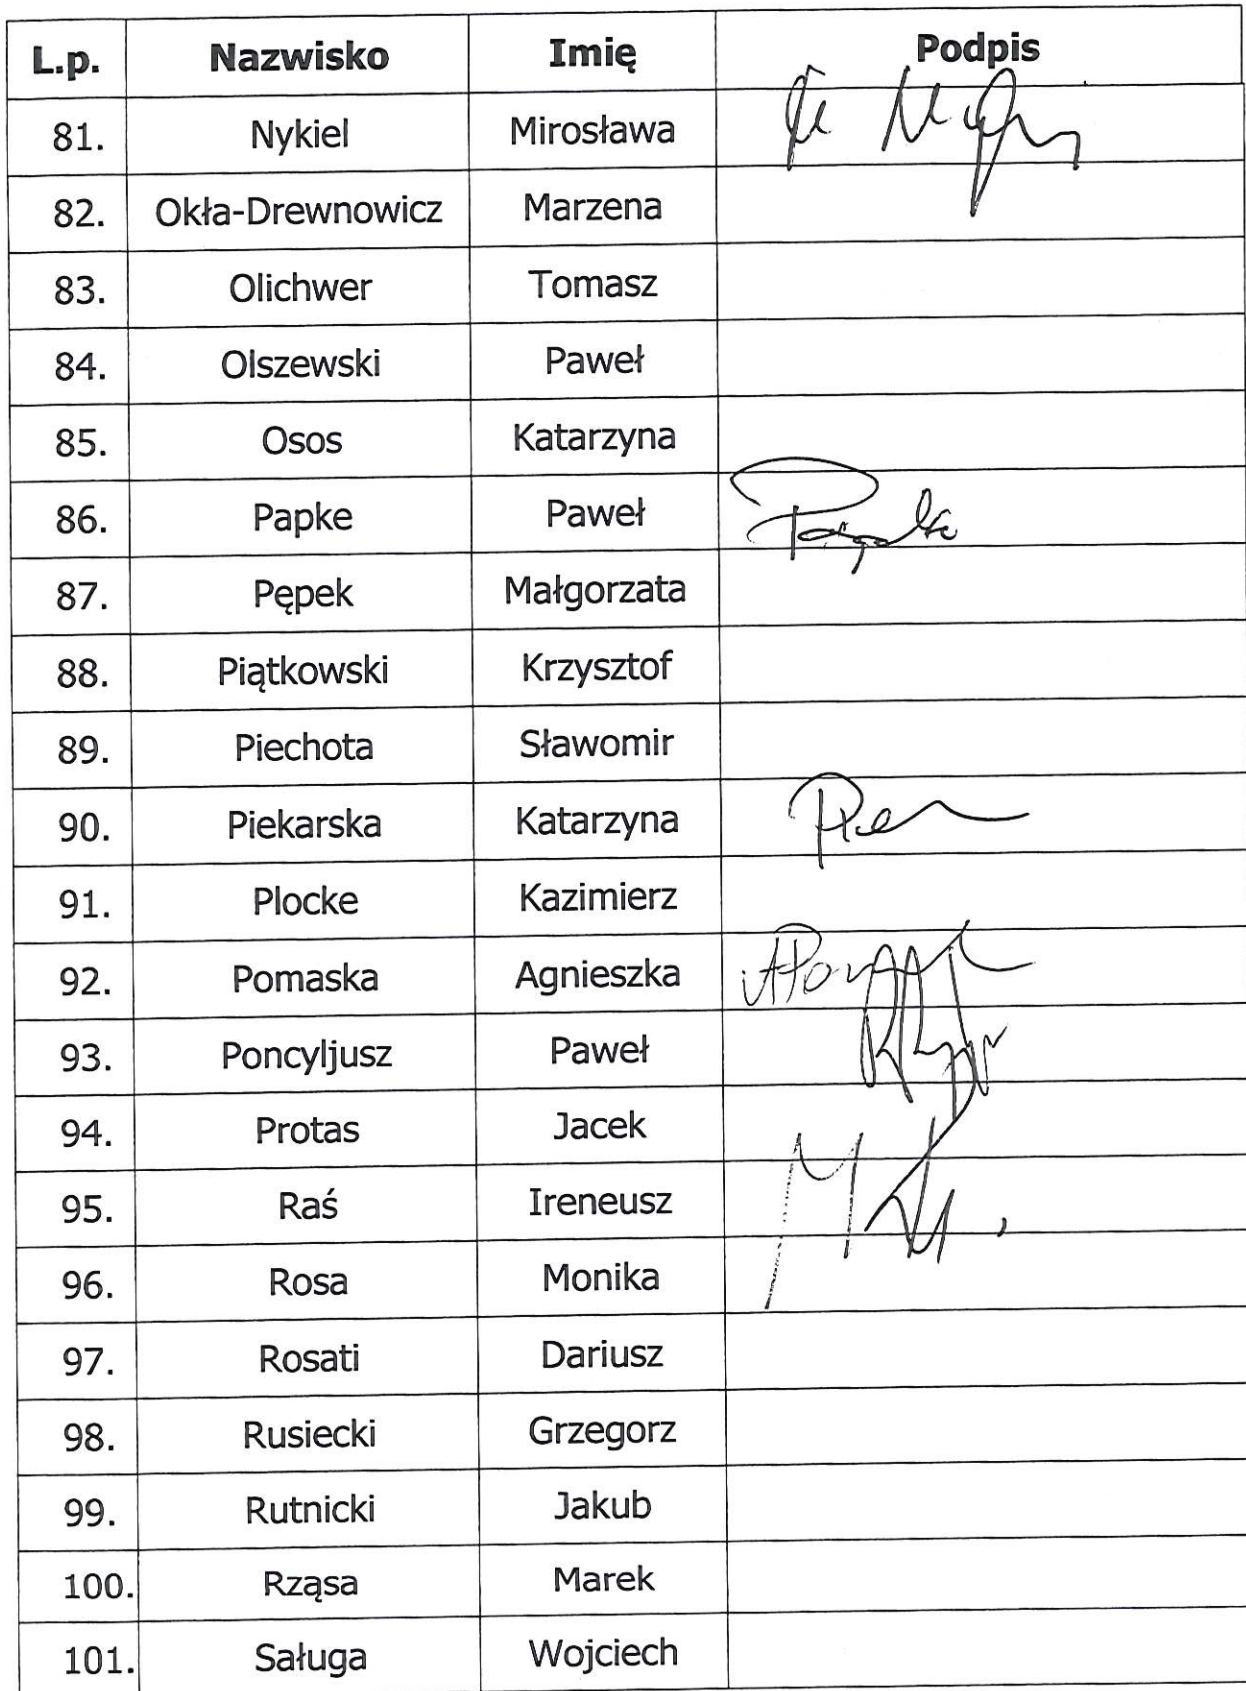 L.p. Nazwisko Imię Podpis
81. Nykiel Mirosława
82. Okła-Drewnowicz Marzena
83. Olichwer Tomasz
84. Olszewski Paweł
85. Osos Katarzyna
86. Papke Paweł
87. Pępek Małgorzata
88. Piątkowski Krzysztof
89. Piechota Sławomir
90. Piekarska Katarzyna
91. Plocke Kazimierz
92. Pomaska Agnieszka
93. Poncyljusz Paweł
94. Protas Jacek
95. Raś Ireneusz
96. Rosa Monika
97. Rosati Dariusz
98. Rusiecki Grzegorz
99. Rutnicki Jakub
100. Rząsa Marek
101. Saługa Wojciech